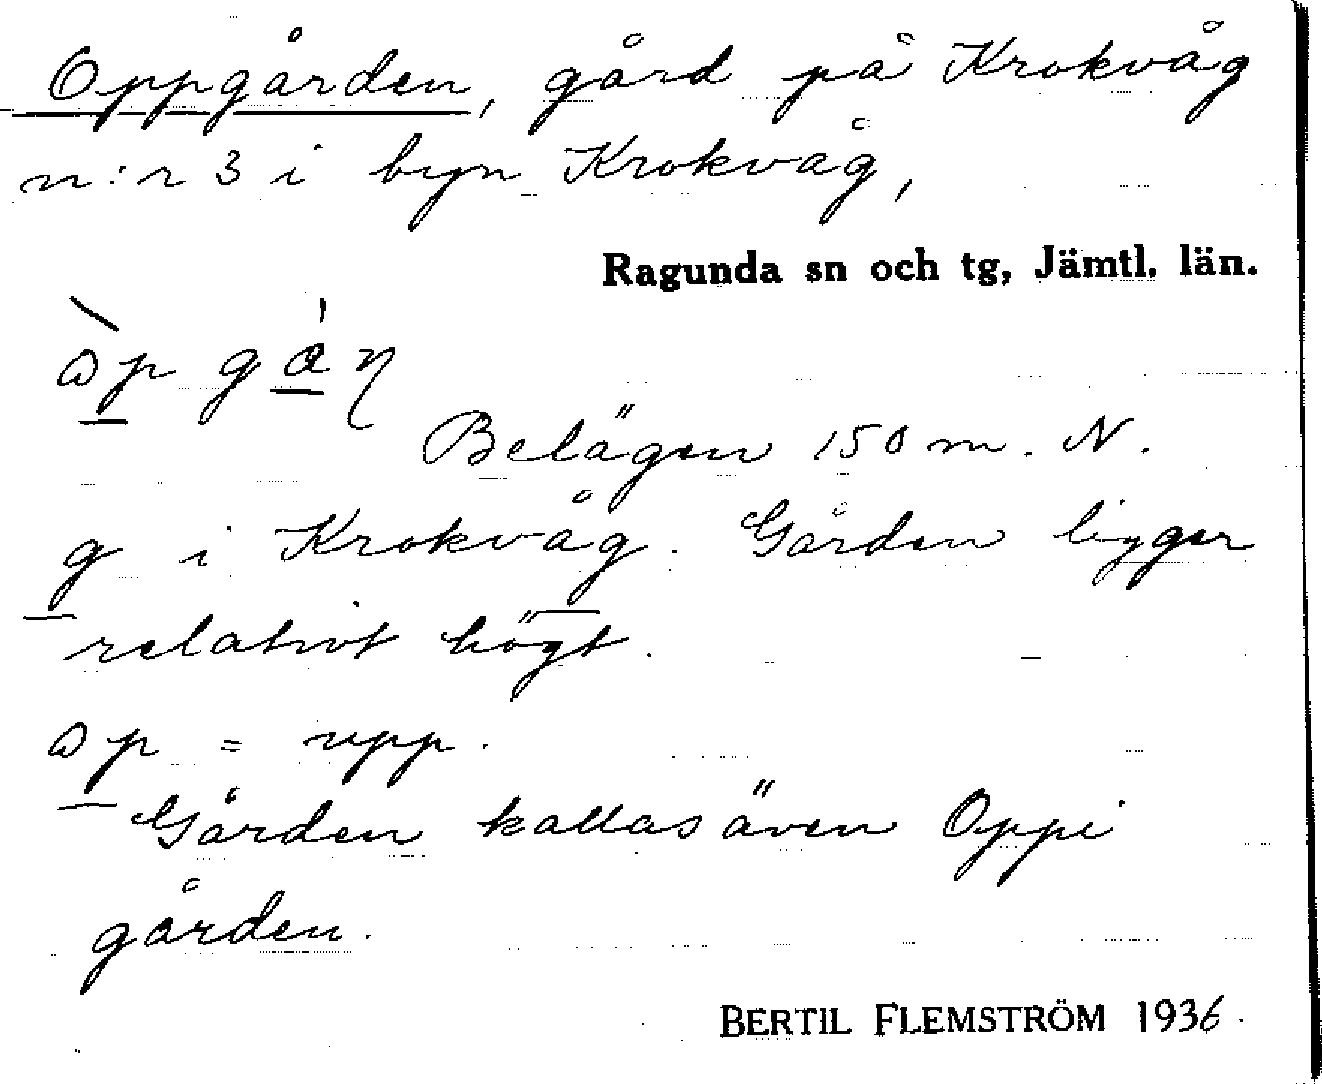 Oppgården, gård på Krokvåg
n:r 3 i byn Krokvåg,
Ragunda sn och tg, Jämtl. län.
Belägen 150 m. N.
g i Krokvåg. Gården ligger
relativt högt.
= upp.
Gården kallas även Oppi
gården.
BERTIL FLEMSTRÖM 1936.